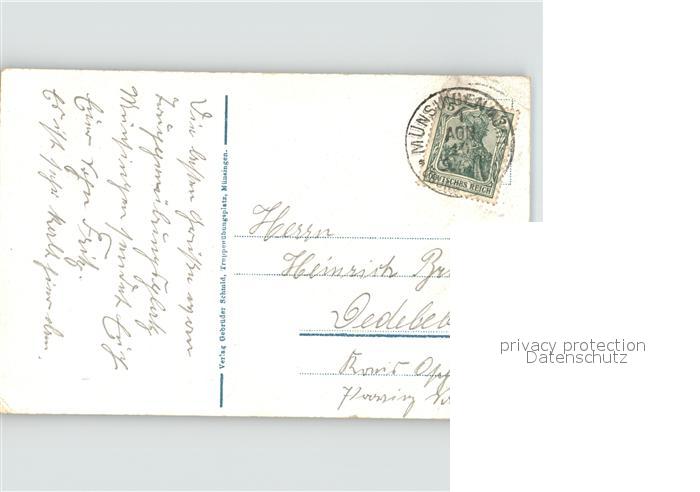 Die besten Grüße vom
Truppenübungsplatz
Münsingen sendet Euch
Euer
Es ist sehr kalt hier oben.
Verlag Gebrüder Schmid, Truppenübungsplatz, Münsingen.
MÜNSINGEN
DEUTSCHES REICH
Herrn
Heinrich
Dedeleb
Kreis
Provinz
privacy protection
Datenschutz